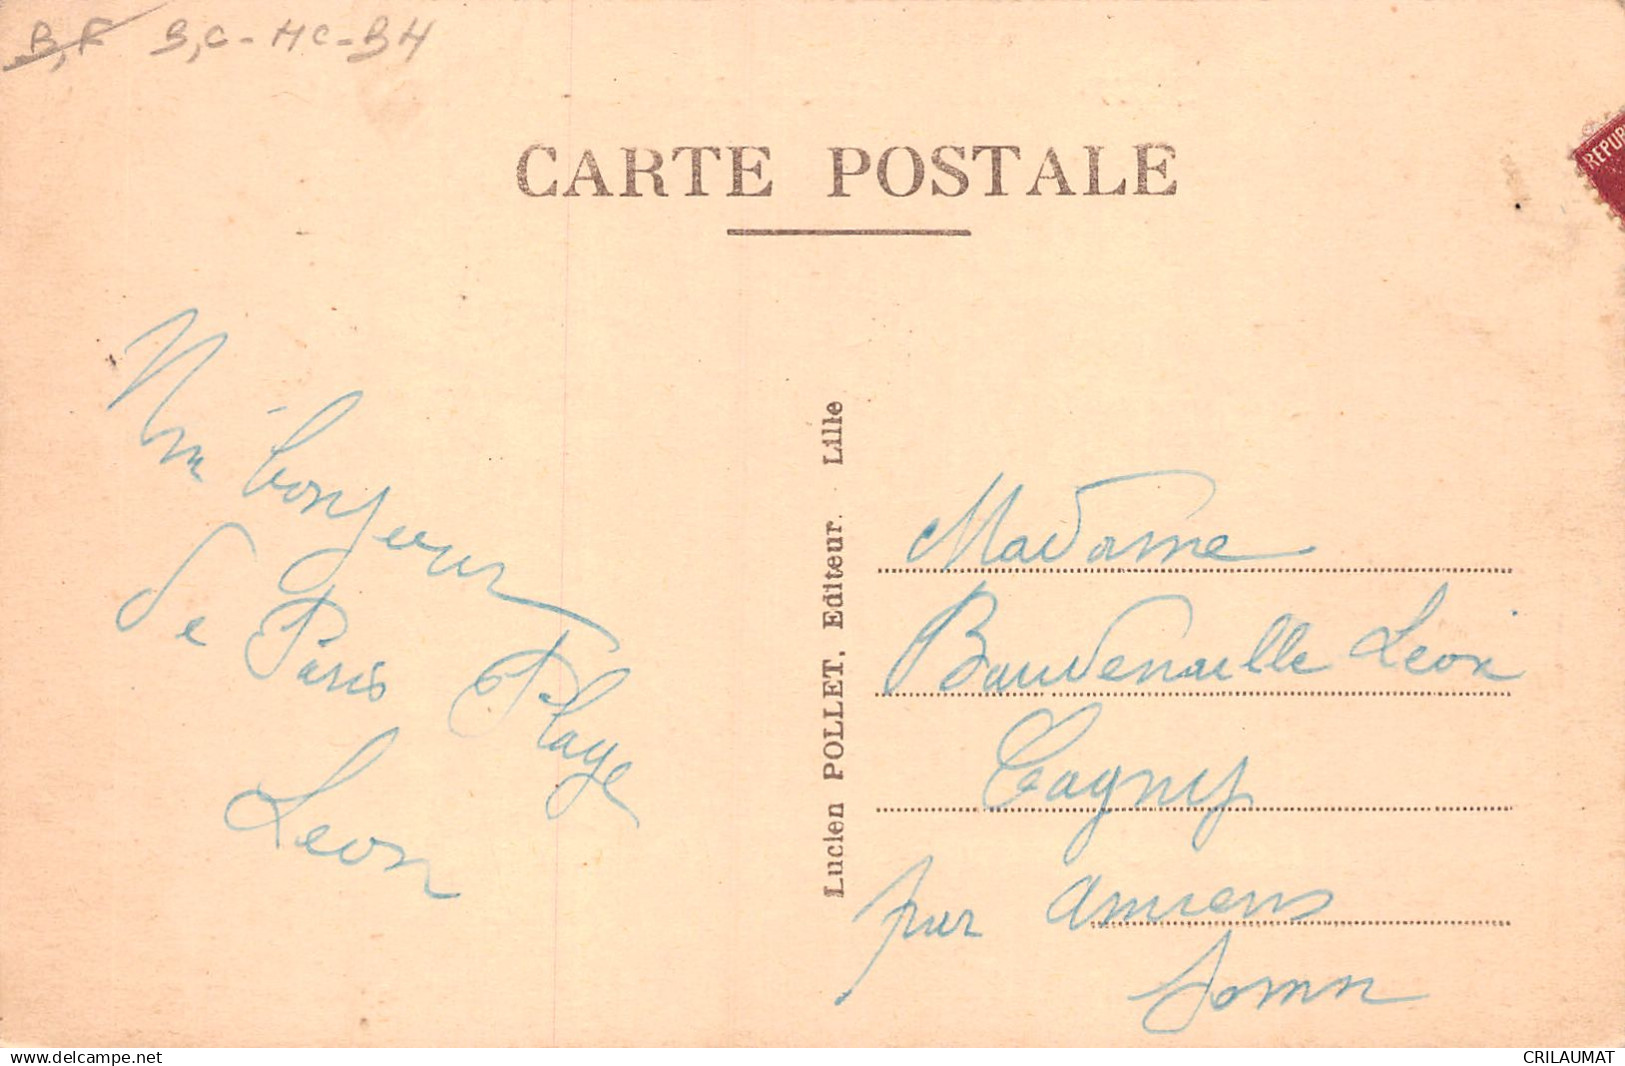 B,F B,C-MC-BH
CARTE POSTALE
REPUB
Un bonjour
de Paris Plage
Leon
Lucien POLLET, Editeur. Lille
Madame
Leon
Cagny
par Amiens
Somm
www.delcampe.net
CRILAUMAT